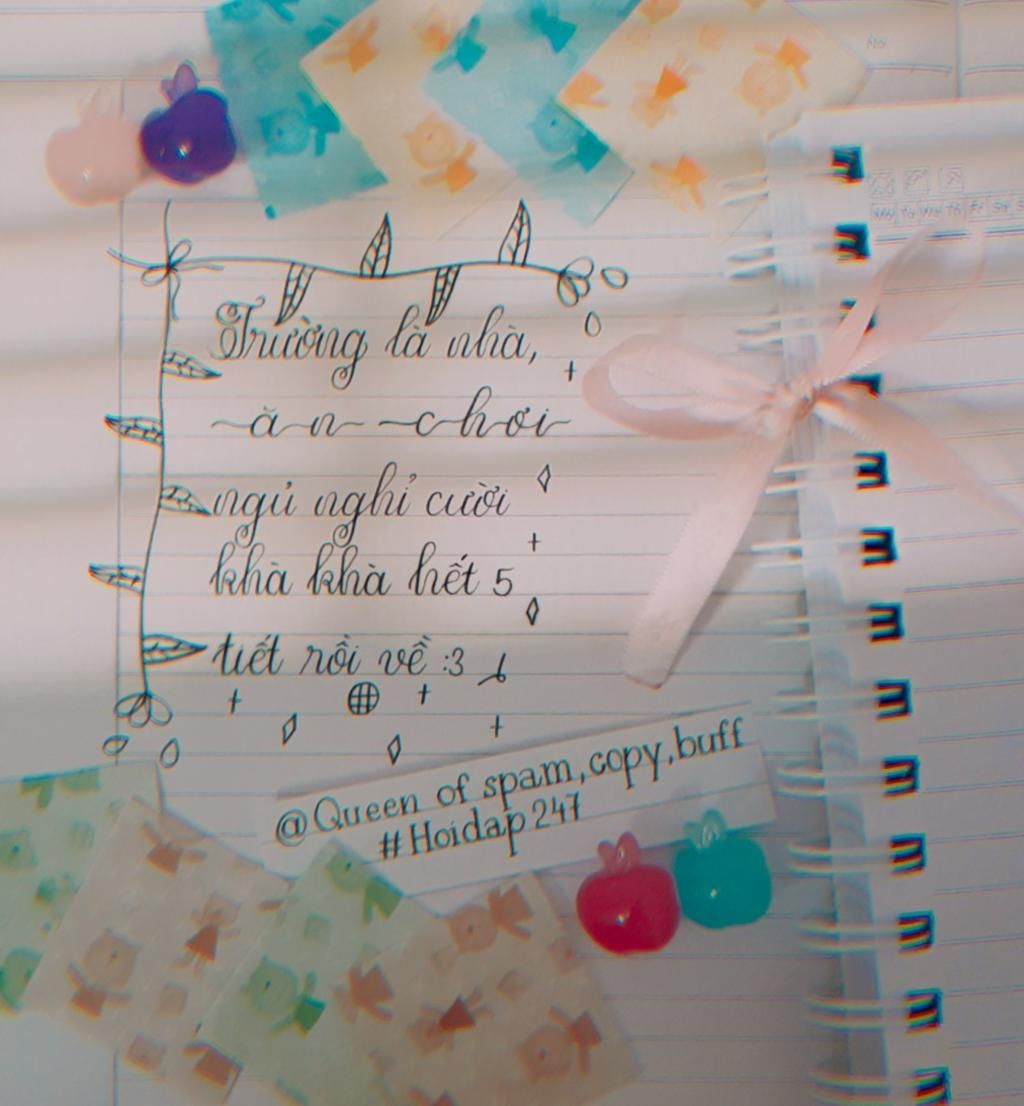 Trường là nhà,
ăn chơi
ngủ nghỉ cười
khà khà hết 5
tiết rồi về :3
@Queen of spam,copy,buff
#Hoidap247